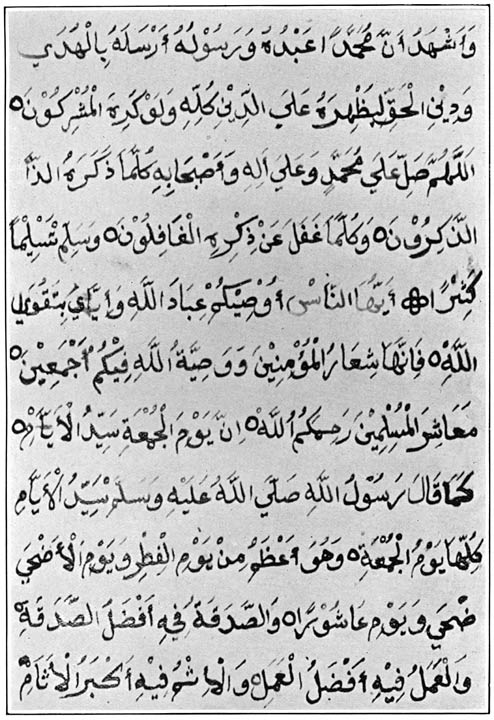 وَاَشْهَدُ اَنَّ مُحَمَّدًا عَبْدُهُ وَرَسُوْلُهُ أَرْسَلَهُ بِالْهُدَي
وَدِيْنِ الْحَقِّ لِيُظْهِرَهُ عَلَي الدِّيْنِ كُلِّهِ وَلَوْ كَرِهَ الْمُشْرِكُوْنَ ٥
اَللَّهُمَّ صَلِّ عَلَي مُحَمَّدٍ وَعَلَي اَلِهِ وَاَصْحَابِهِ كُلَّمَا ذَكَرَهُ الذَّا
الذَّكِرُوْنَ ٥ وَكُلَّمَا غَفَلَ عَنْ ذِكْرِهِ الْغَافِلُوْنَ ٥ وَسَلِّمْ تَسْلِيْمًا
كَثِيْرًا أَيُّهَا النَّاسْ أُوْصِيْكُمْ عِبَادَ اللَّهِ وَاِيَّايَ بِتَقْوَي
اللَّهِ ٥ فَاِنَّهَا شِعَارُ الْمُؤْمِنِيْنَ وَوَصِيَّةُ اللَّهِ فِيْكُمْ أَجْمَعِيْنَ ٥
مَعَاشِرَ الْمُسْلِمِيْنَ رَحِمَكُمُ اللَّهُ ٥ اِنَّ يَوْمَ الْجُمْعَةِ سَيِّدُ الْاَيَّامْ ٥
كَمَا قَالَ رَسُوْلُ اللَّهِ صَلَّي اللَّهُ عَلَيْهِ وَسَلَّمْ سَيِّدُ الْاَيَّامِ
كُلِّهَا يَوْمُ الْجُمْعَةِ ٥ وَهُوَ أَعْظَمُ مِنْ يَوْمِ الْفِطْرِ وَيَوْمِ الْأَضْحَي
ضْحَي وَيَوْمِ عَاشُوْرَا ٥ وَالصَّدَقَةُ فِيْهِ أَفْضَلُ الصَّدَقَةِ ٥
وَالْعَمَلُ فِيْهِ أَفْضَلُ الْعَمَلِ وَالْاِثْمُ فِيْهِ أَكْبَرُ الْأَثَامْ